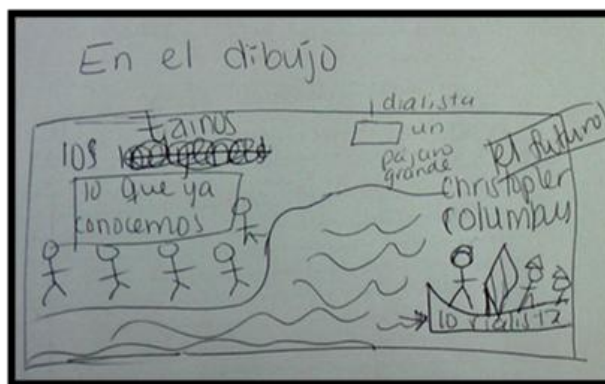 En el dibujo
tainos
los
lo que ya
conocemos
idialista
un
pájaro
grande
el futuro
Christopler
columbus